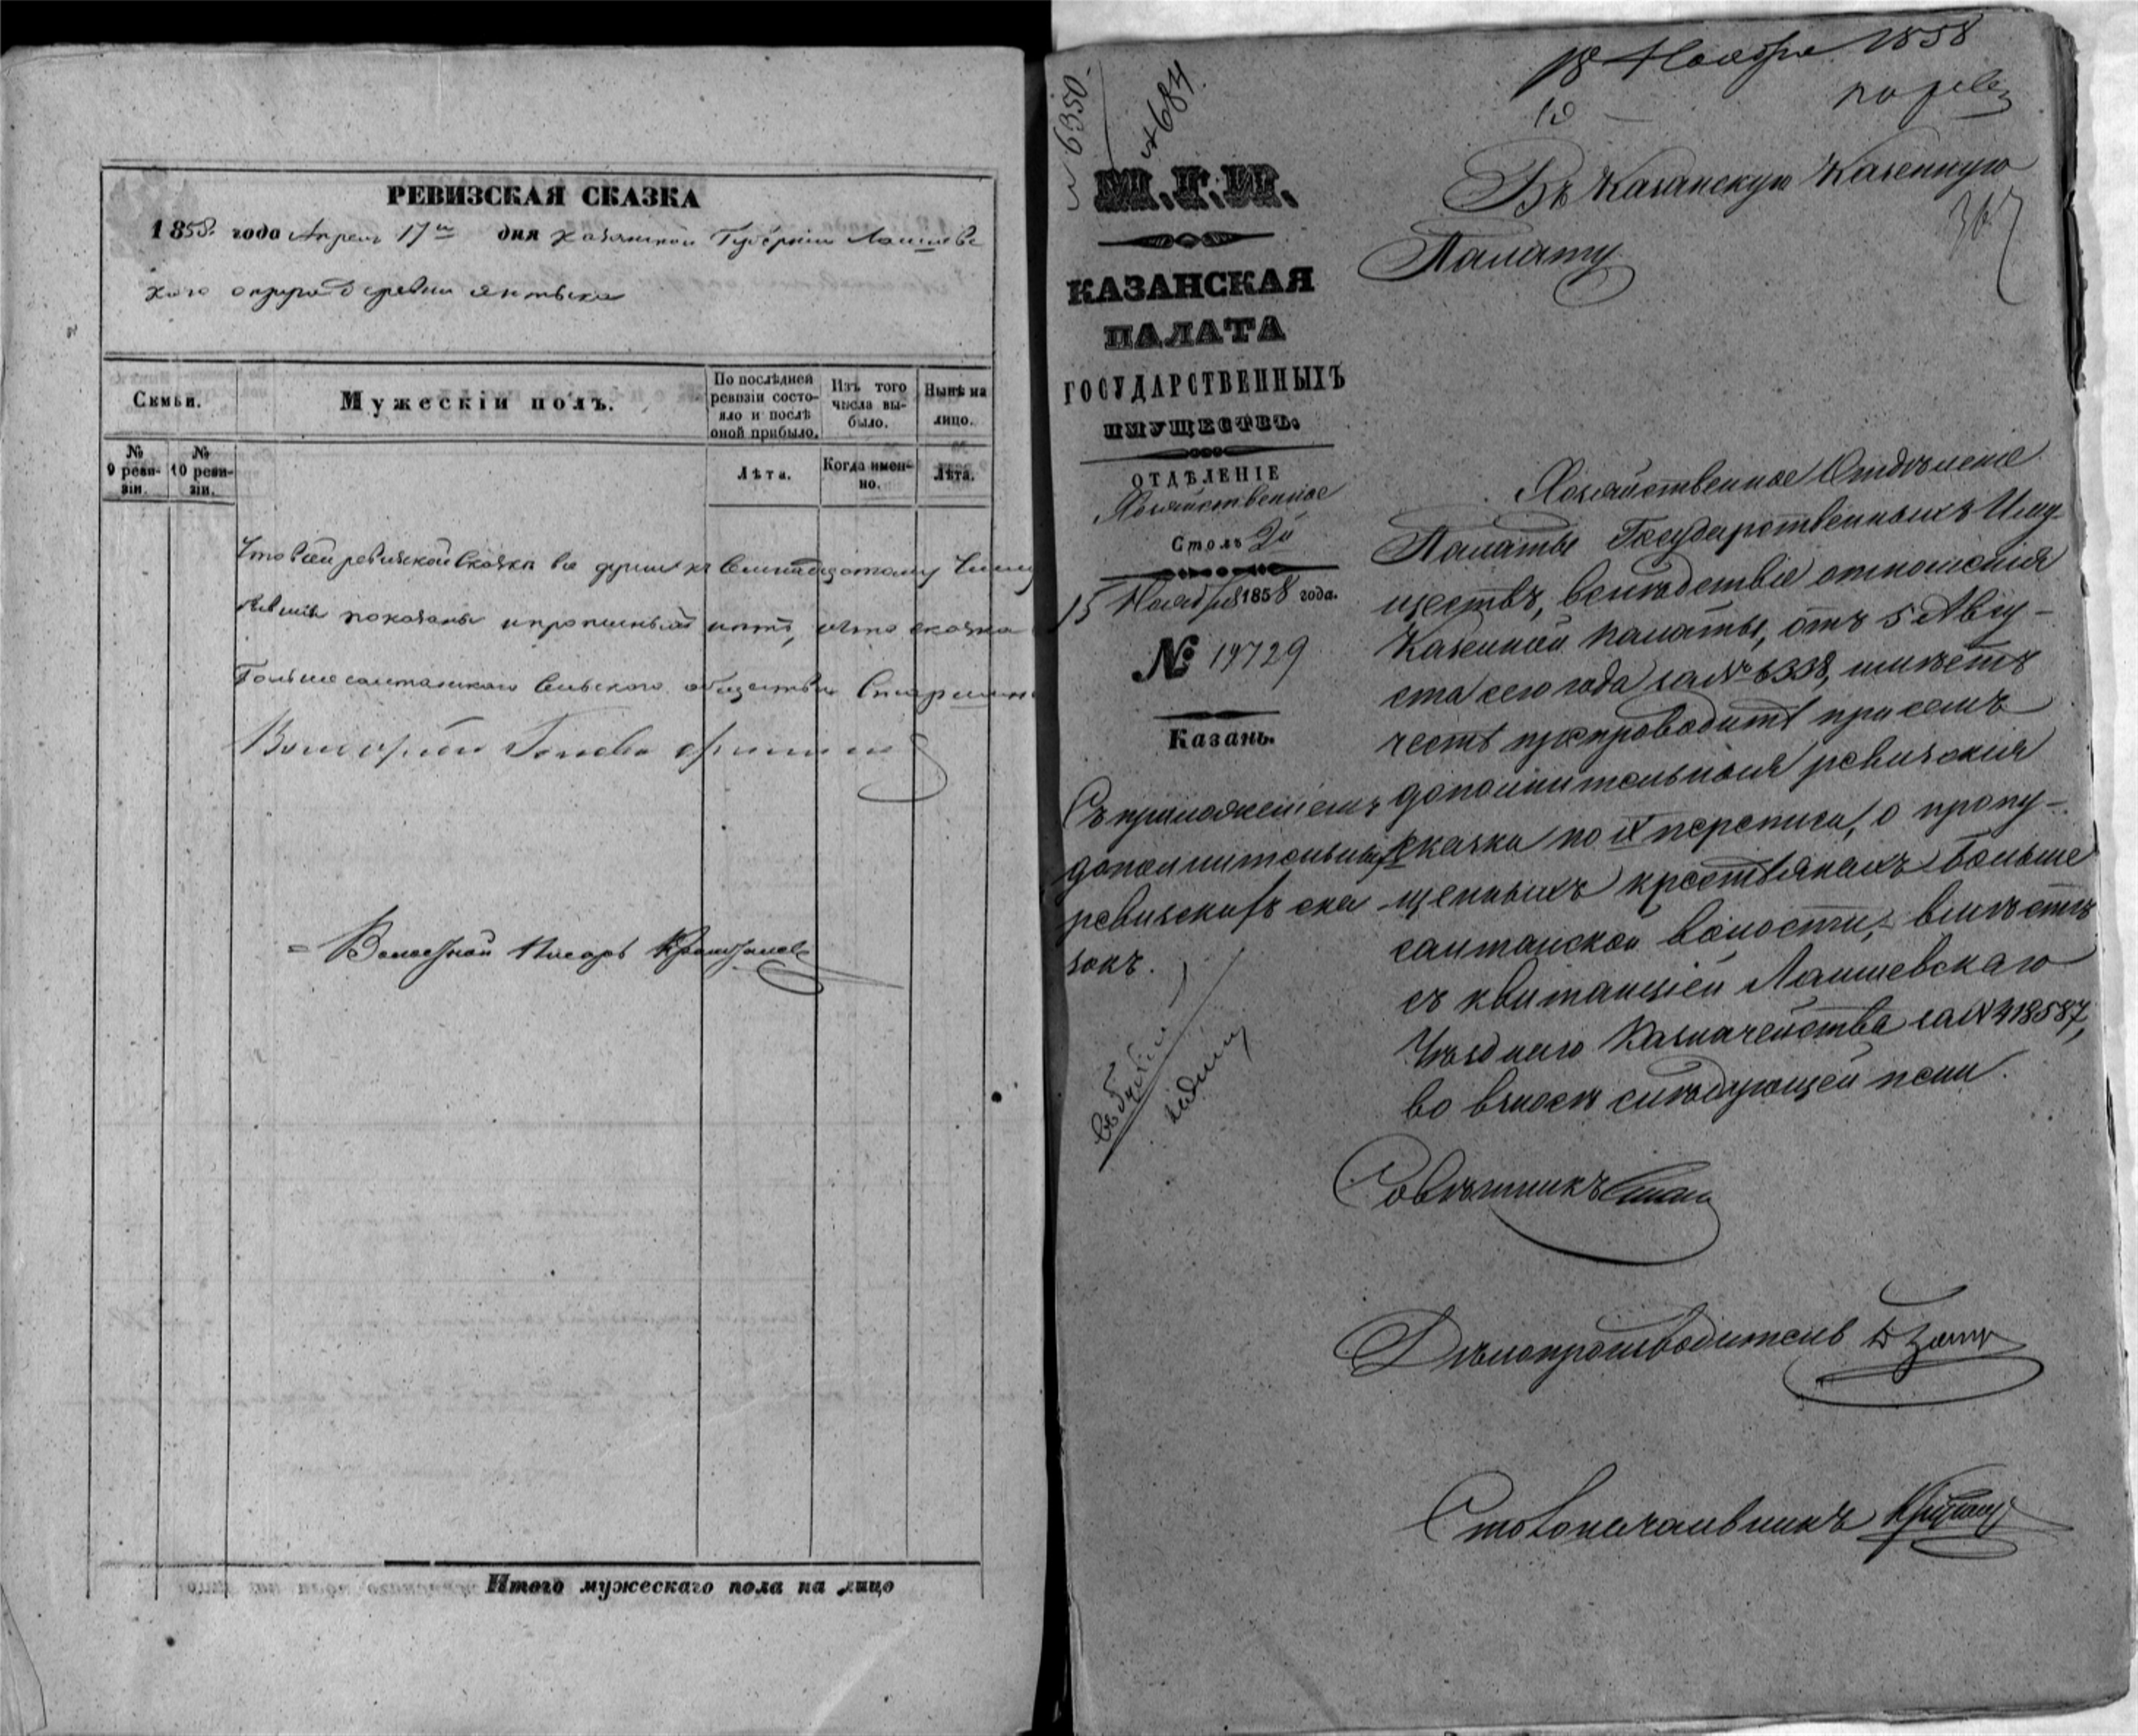 РЕВИЗСКАЯ СКАЗКА
1858 года Апреля 17го дня Казанской Губернии Лаишевс
каго округа деревни
Семьи.
Мужескій полъ.
По послѣдней
ревизіи состо-
яло и послѣ
оной прибыло.
Изъ того
числа вы-
было.
Нынѣ на
лицо.
№
9 реви-
зіи.
№
10 реви-
зіи.
Лѣта.
Когда имен-
но.
Лѣта.
Что въ сей ревизской сказки все души къ
показаны и прописныхъ нѣтъ, сказка
сельскаго общества Старшина
Волостной Писарь
Итого мужескаго пола на лицо
№ 6350
№ 684
18 Ноября 1858
по рев
Въ Казанскую Казенную
Палату
367
М.Г.И.
КАЗАНСКАЯ
ПАЛАТА
ГОСУДАРСТВЕННЫХЪ
ИМУЩЕСТВЪ.
ОТДѢЛЕНІЕ
Хозяйственное
Столъ 2й
15 Ноября 1858 года.
№ 19729
Казань.
Съ приложеніемъ
дополнительныхъ
ревизскихъ ска
зокъ.
Хозяйственное Отдѣленіе
Палаты Государственныхъ Иму-
ществъ, вслѣдствіе отношенія
Казенной палаты, отъ 5 Авгу-
ста сего года за № 6338, имѣетъ
честь препроводить при семъ
дополнительныя ревизскія
сказки по IX переписи, о пропу-
щенныхъ крестьянахъ Больше
салтанской волости, вмѣстѣ
съ квитанціей Лаишевскаго
Уѣзднаго Казначейства за № 418587,
во взносѣ слѣдующей пени.
Совѣтникъ
Дѣлопроизводитель
Столоначальникъ